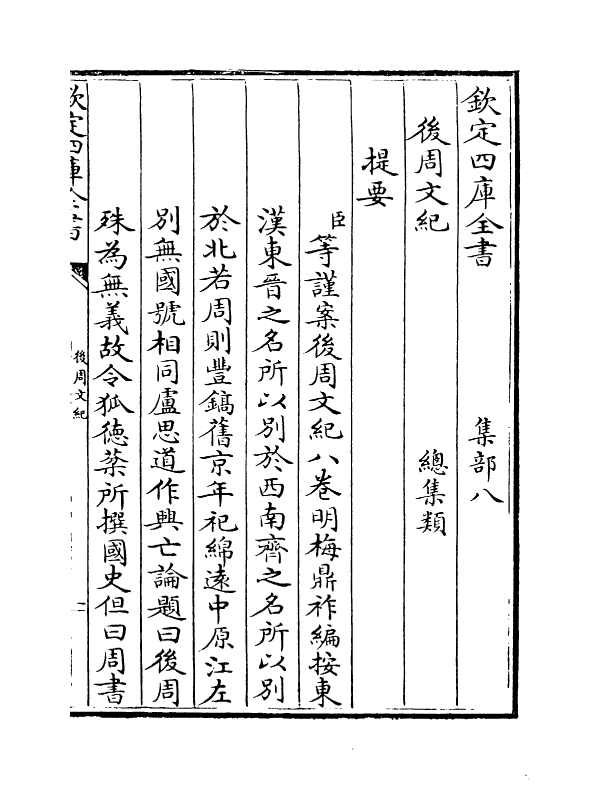 欽定四庫全書　　　集部八
後周文紀　　　　　總集類
提要
臣等謹案後周文紀八卷明梅鼎祚編按東
漢東晉之名所以別於西南齊之名所以別
於北若周則豐鎬舊京年祀綿遠中原江左
別無國號相同盧思道作興亡論題曰後周
殊為無義故令狐德棻所撰國史但曰周書
欽定四庫全書
後周文紀